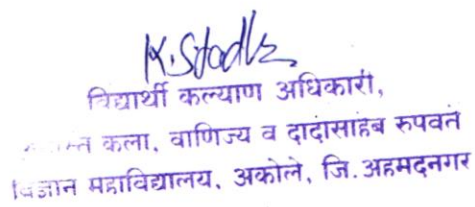 विद्यार्थी कल्याण अधिकारी,
कला, वाणिज्य व दादासाहेब रुपवते
विज्ञान महाविद्यालय, अकोले, जि. अहमदनगर